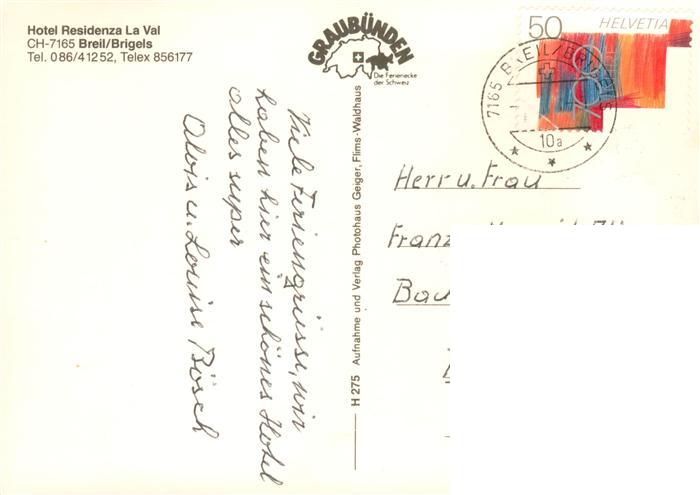 Hotel Residenza La Val
CH-7165 Breil/Brigels
Tel. 086/41252, Telex 856177
GRAUBÜNDEN
Die Ferienecke
der Schweiz
50 HELVETIA
700
7165 BREIL/BRIGELS
10a
Viele Feriengrüsse, wir
haben hier ein schönes Hotel
alles super
Alois u. Louise Bösch
H 275 Aufnahme und Verlag Photohaus Geiger, Flims-Waldhaus
Herr u. Frau
Franz